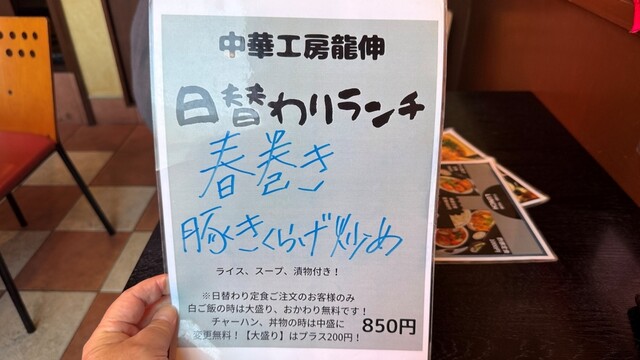 中華工房龍伸
日替わりランチ
春巻き
豚きくらげ炒め
ライス、スープ、漬物付き！
※日替わり定食ご注文のお客様のみ
白ご飯の時は大盛り、おかわり無料です！
チャーハン、丼物の時は中盛に
変更無料！【大盛り】はプラス200円！
850円